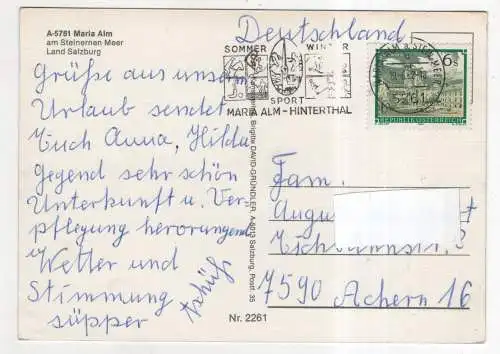 A-5761 Maria Alm
am Steinernen Meer
Land Salzburg
Deutschland
SOMMER WINTER
SPORT
MARIA ALM - HINTERTHAL
5761
REPUBLIK ÖSTERREICH
Grüße aus unserm
Urlaub sendet
Euch Anna, Hilda
Gegend sehr schön
Unterkunft u. Ver-
pflegung herorragend
Wetter und
Stimmung
süpper
tschüß
Brigitte DAVID-GRÜNDLER, A-5013 Salzburg, Postf. 35
Nr. 2261
Fam.
7590 Achern 16